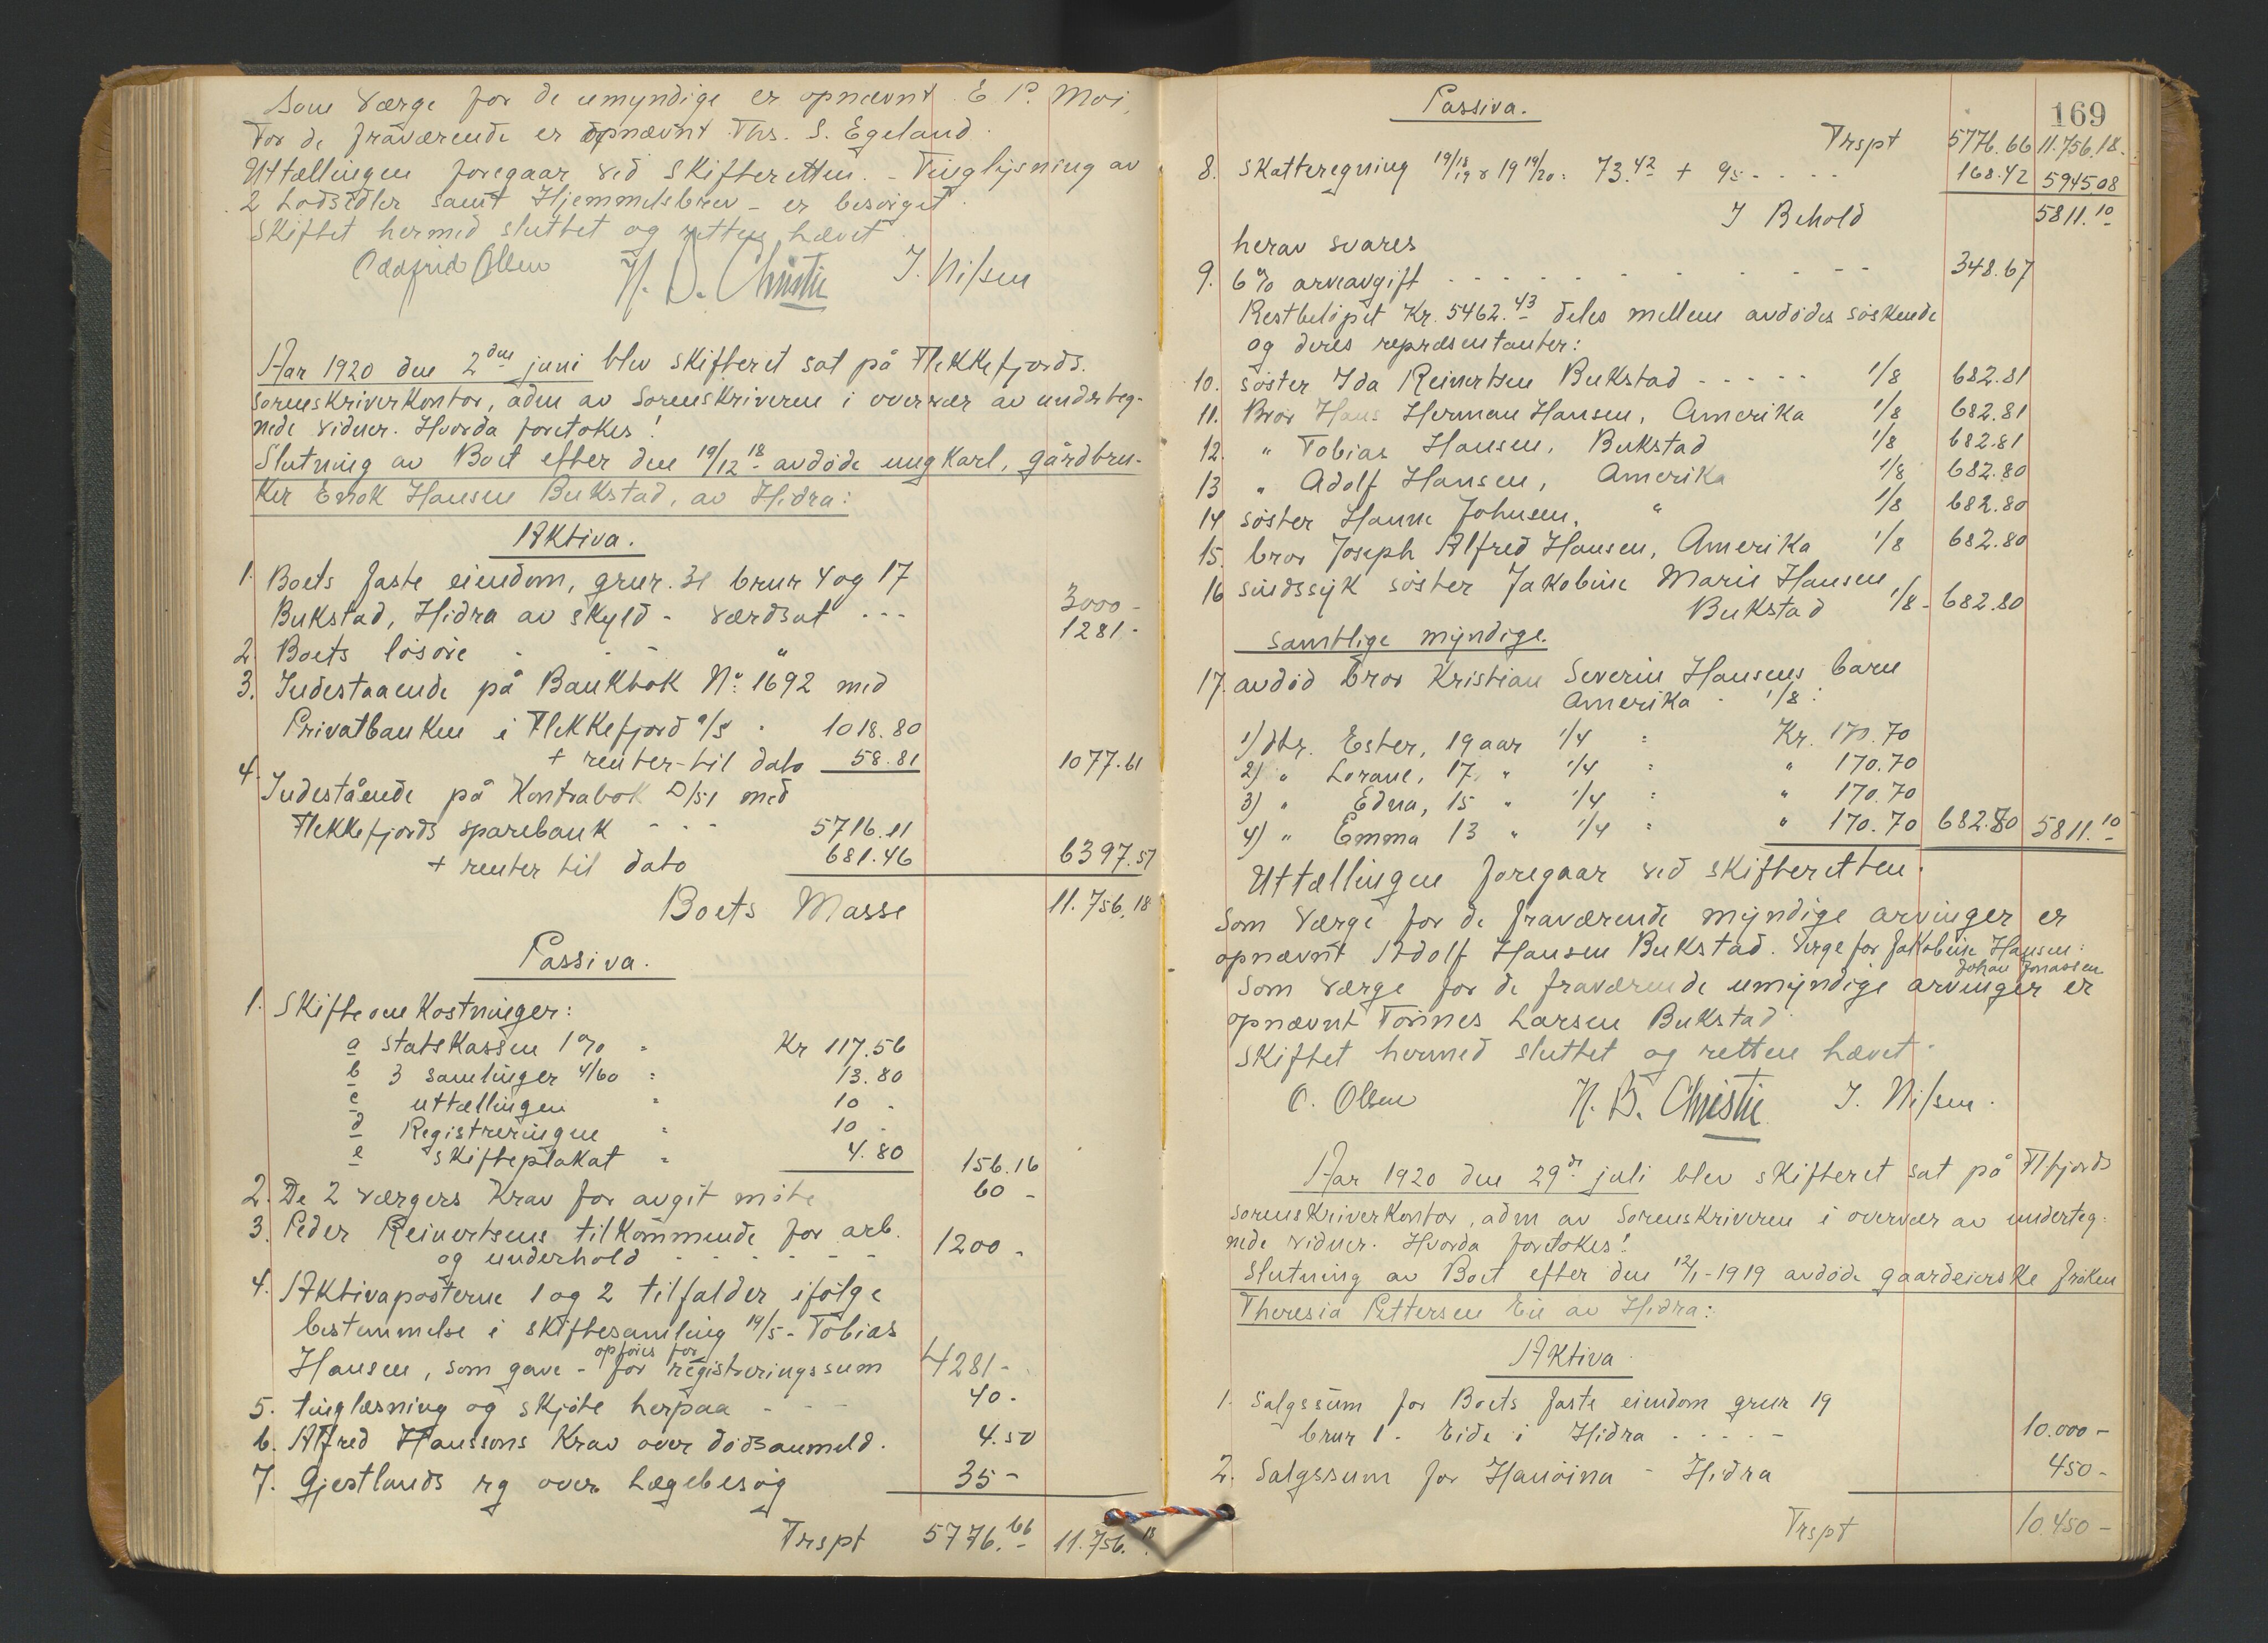 Som Værge for de umyndige er opnævnt E P. Moi,
For de fraværende er opnævnt Ths. S. Egeland.
Uttællingen foregaar ved Skifteretten. - Tinglysning av
2 Lodsedler samt Hjemmelsbrev - er besørget.
Skiftet hermed sluttet og retten hævet
Oddfrid Olsen N. B. Christie J. Nilsen
Aar 1920 den 2den juni blev skifteret sat på Flekkefjords.
sorenskriverkontor, adm av Sorenskriveren i overvær av underteg-
nede vidner. Hvorda foretokes!
Slutning av Boet efter den 19/12 18 avdøde ungkarl, gårdbru-
ker Enok Hansen Bukstad, av Hidra:
Aktiva.
1. Boets faste eiendom, grnr. 31 brnr 4 og 17
Bukstad, Hidra av skyld - værdsat - - - 3000 -
2. Boets løsøre - - - " 1281 -
3. Indestaaende på Bankbok No: 1692 med
Privatbanken i Flekkefjord a/s . 1018.80
+ renter til dato 58.81 1077.61
4. Indestående på Kontrabok D/51 med
Flekkefjords sparebank - - - 5716.11
+ renter til dato 681.46 6397.57
Boets Masse 11.756.18
Passiva.
1. Skifteomkostninger:
a Statskassen 1% = Kr 117.56
b 3 samlinger 4/60 = 13.80
c uttællingen = 10 -
d Registreringen = 10 -
e skifteplakat = 4.80 156.16
2. De 2 værgers krav for avgit møte 60 -
3. Peder Reinertsens tilkommende for arb.
og underhold - - - - - - 1200 -
4. Aktivaposterne 1 og 2 tilfalder ifølge
bestemmelse i skiftesamling 19/5 - Tobias
opføres for
Hansen, som gave - for registreringssum 4281 -
5. tinglæsning og skjøte herpaa - - - 40 -
6. Alfred Hanssons krav over dødsanmeld. 4.50
7. Gjestlands rg over Lægebesøg 35 -
Trspt 5776.66 11.756.18
169
Passiva.
Trspt 5776.66 11.756.18.
8. Skatteregning 19 18/19 & 19 19/20: 73.42 + 95 - - - - 168.42 5945 08
I Behold 5811.10
herav svares
9. 6% arveavgift - - - - - - - - - 348.67
Restbeløpet Kr. 5462.43 deles mellem avdødes søskende
og deres repræsentanter:
10. søster Ida Reinertsen Bukstad - - - - - 1/8 682.81
11. Bror Hans Herman Hansen, Amerika 1/8 682.81
12. " Tobias Hansen, Bukstad 1/8 682.81
13 " Adolf Hansen, Amerika 1/8 682.80
14 søster Hanne Johnsen, " 1/8 682.80
15. bror Joseph Alfred Hansen, Amerika 1/8 682.80
16 sindssyk søster Jakobine Marie Hansen,
Bukstad 1/8 - 682.80
samtlige myndige.
17. avdød bror Kristian Severin Hansens barn
Amerika - 1/8:
1) dtr. Ester, 19 aar 1/4 = Kr. 170.70
2) " Lorane, 17 " 1/4 = " 170.70
3) " Edna, 15 " 1/4 = " 170.70
4) " Emma 13 " 1/4 = " 170.70 682.80 5811.10
Uttællingen foregaar ved skifteretten.
Som Værge for de fraværende myndige arvinger er
opnævnt Adolf Hansen Bukstad. Verge for Jakobine Hansen:
Johan Jonassen
Som Værge for de fraværende umyndige arvinger er
opnævnt Tønnes Larsen Bukstad
Skiftet hermed sluttet og retten hævet.
O. Olsen N. B. Christie J. Nilsen.
Aar 1920 den 29de juli blev skifteret sat på Fl.fjords
sorenskriverkontor, adm av Sorenskriveren i overvær av underteg-
nede vidner. Hvorda foretokes!
Slutning av Boet efter den 12/1 - 1919 avdøde gaardeierske frøken
Theresia Pettersen Eie av Hidra:
Aktiva
1. Salgssum for Boets faste eiendom grnr 19
brnr 1. Eide i Hidra - - - - - 10.000 -
2. Salgssum for Hanøina - Hidra 450 -
Trspt 10.450 -